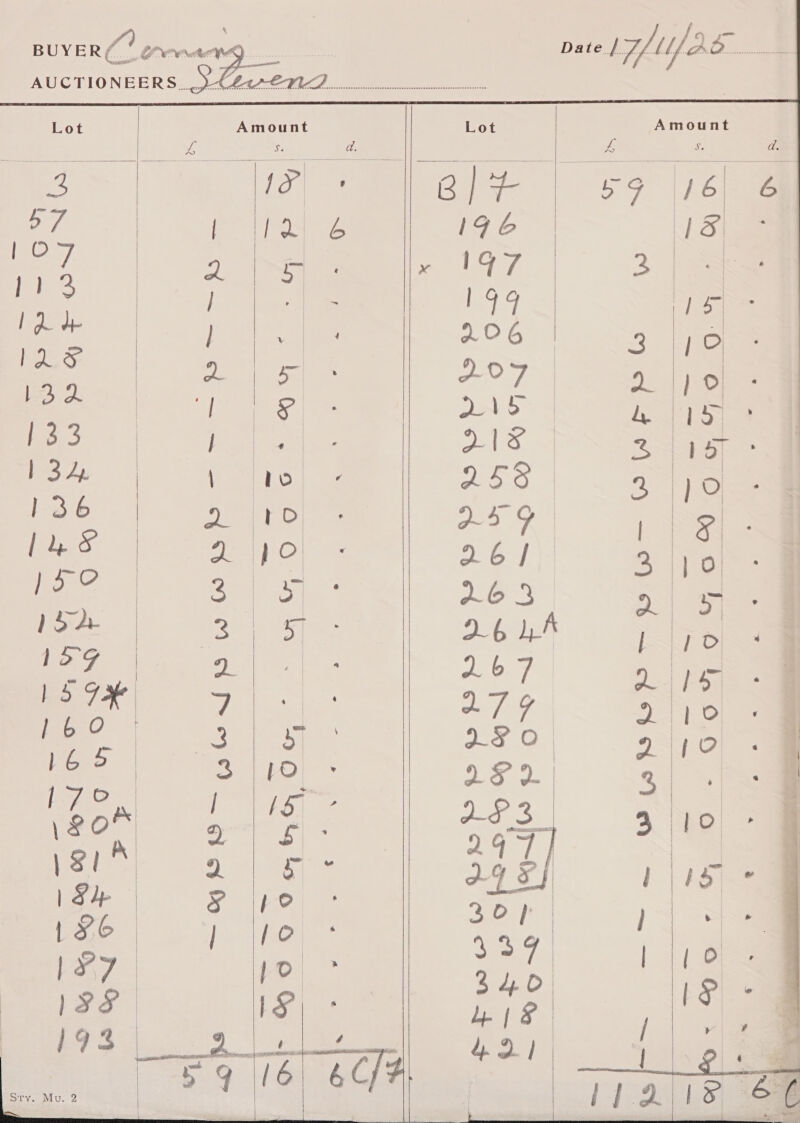 BUYER Coming
Date 17/11/25
AUCTIONEERS Stevens
Lot Amount
£ s. d.
3 18 .
57 1 12 6
107 2 5 .
113 1 . -
124 1 . .
128 2 5 .
132 1 8 .
133 1 . .
134 1 10 .
136 2 10 .
148 2 10 .
150 3 5 .
154 3 5 .
159 2 . .
159* 7 . .
160 3 5 .
165 3 10 .
170 1 15 .
180A 2 5 .
181A 2 5 .
184 8 10 .
186 1 10 .
187 10 .
188 18 .
193 2 . .
59 16 6 C/7
Sty. Mu. 2
Lot Amount
£ s. d.
B/7 59 16 6
196 18 .
x 197 3 . .
199 15 .
206 3 10 .
207 2 10 .
215 4 15 .
218 3 15 .
258 3 10 .
259 1 8 .
261 3 10 .
263 2 5 .
264A 1 10 .
267 2 15 .
279 2 10 .
280 2 10 .
282 3 . .
283 3 10 .
297
298 1 15 .
301 1 . .
339 1 10 .
340 18 .
418 1 . .
421 1 8 .
112 18 6 C